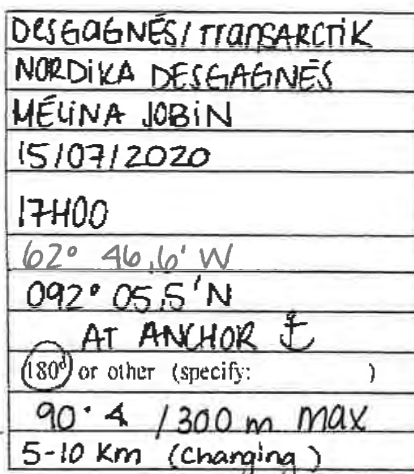 DESGAGNÉS/TransARCTiK
NORDiKA DESGAGNÉS
MÉLiNA JOBiN
15/07/2020
17H00
62° 46,6' W
092° 05,5' N
AT ANCHOR ⚓
180° or other (specify: )
90° 4 / 300 m max
5-10 Km (changing)